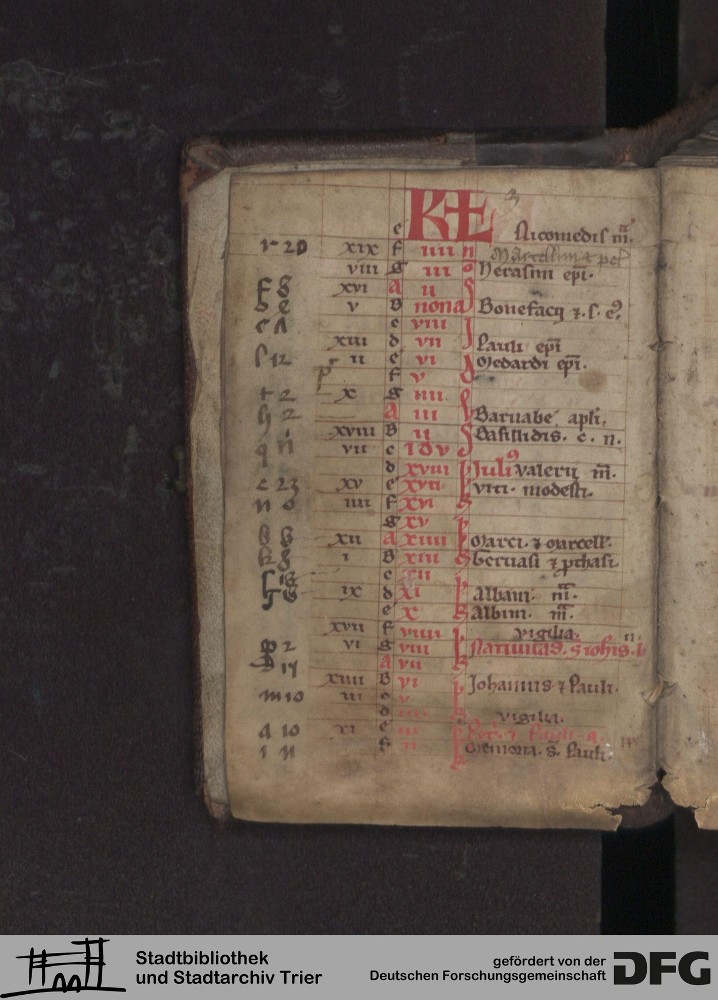 KL
e Nicomedis m̄.
r 20 xix f iiii n Marcellini & pet
viii g iii o herasmi epī.
f 8 xvi A ii
v B nona Bonefacij ⁊ s. eꝰ
c e viii
xiii d vii Pauli epī
l 12 ii e vi Medardi epī.
f v
t 2 x g iiii.
h 2 A iii Barnabe apli.
xviii B ii Basillidis. c. n.
q vii c Idv
d xviii Juliꝰ valerii m̄.
c 23 xv e xvii viti. modesti.
n 0 iiii f xvi
g xv
xii A xiiii Marci. ⁊ marcell.
k 8 i B xiii Geruasi ⁊ ꝓthasi
c xii
ix d xi Albani m̄.
e x Albini. m̄.
xvii f viiii vigilia.
2 vi g viii Natiuitas. s iohis. b
17 A vii
xiiii B vi Johannis ⁊ Pauli.
m 10 iii c v
d iiii vigilia.
a 10 xi e iii Petri ⁊ Pauli. a.
i 11 f ii Memoria. s. Pauli.
Stadtbibliothek
und Stadtarchiv Trier
gefördert von der
Deutschen Forschungsgemeinschaft
DFG